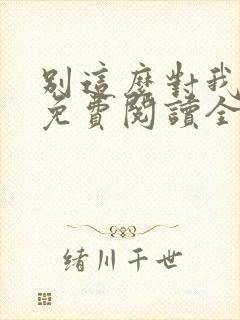 別這麼對我
免費閱讀全
緒川千世